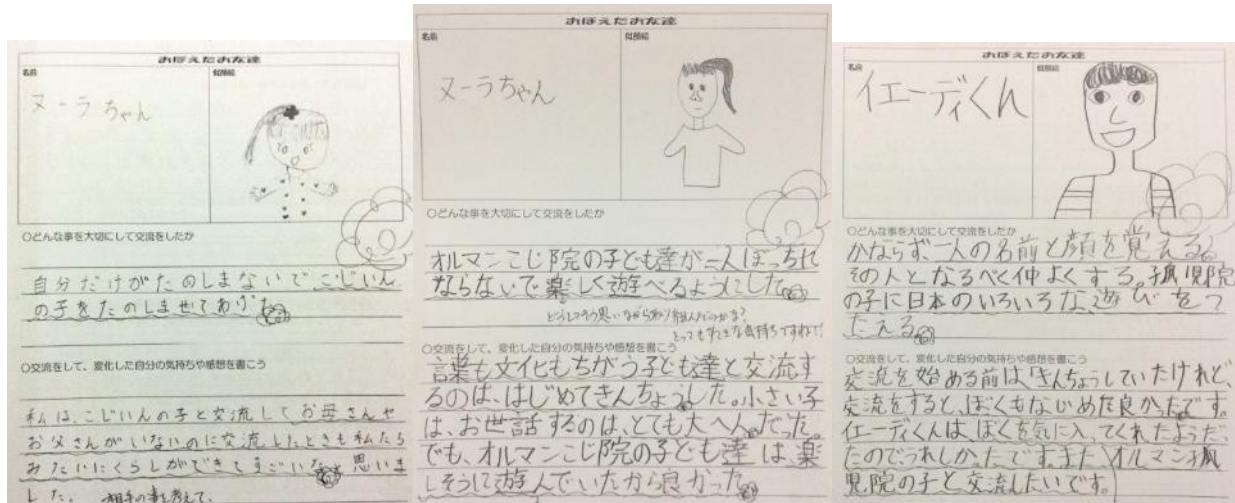 おぼえたお友達
名前
似顔絵
ヌーラちゃん
○どんな事を大切にして交流をしたか
自分だけがたのしまないでこじいん
の子をたのしませてあげた
○交流をして、変化した自分の気持ちや感想を書こう
私は、こじいんの子と交流してお母さんや
お父さんがいないのに交流したときも私たら
みたいにくらしができてすごいな 思いま
した。
相手の事を考えて、
おぼえたお友達
名前
似顔絵
ヌーラちゃん
○どんな事を大切にして交流をしたか
オルマンこじ院の子ども達が一人ぼっちに
ならないで楽しく遊べるようにした。
どうしてそう思いながら 組んだのかな?
とってもすてきな気持ちですね!
○交流をして、変化した自分の気持ちや感想を書こう
言葉も文化もちがう子ども達と交流す
るのは、はじめてきんちょうした。小さい子
は、お世話するのは、とても大へんだった。
でも、オルマンこじ院の子ども達は、楽
しそうに遊んでいたから良かった
おぼえたお友達
名前
似顔絵
イエーディくん
○どんな事を大切にして交流をしたか
かならず、一人の名前と顔を覚える。
その人となるべく仲よくする。孤児院
の子に日本のいろいろな遊びをつ
たえる。
○交流をして、変化した自分の気持ちや感想を書こう
交流を始める前は、きんちょうしていたけれど、
交流をすると、ぼくもなじめた良かったです。
イエーディくんは、ぼくを気に入ってくれたようだっ
たのでうれしかったです。また、オルマン孤
児院の子と交流したいです。